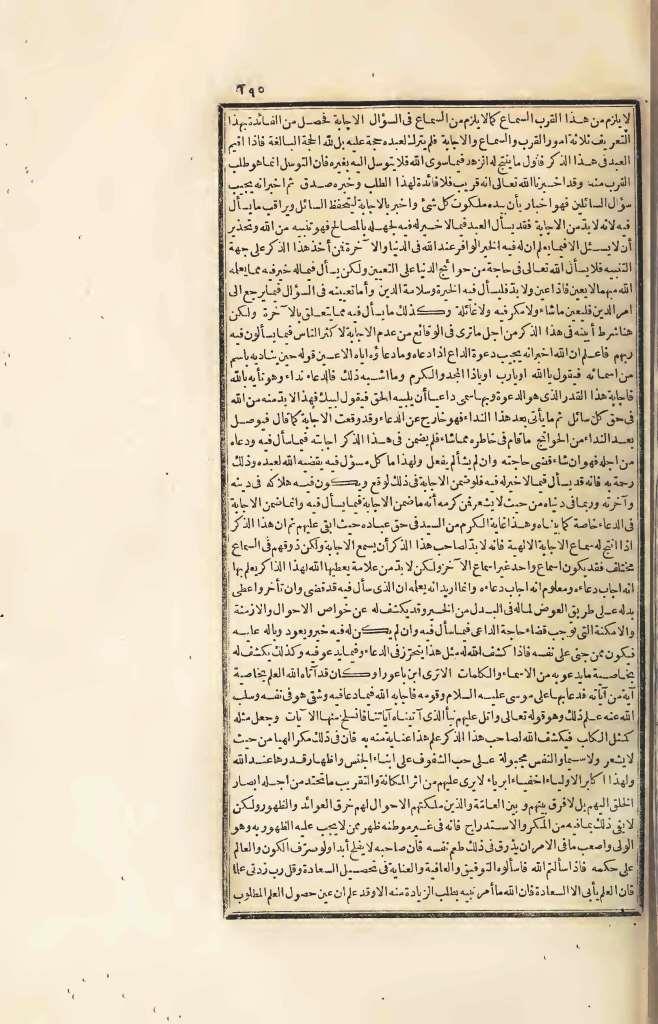 ٢٩٥
لا يلزم من هذا القرب السماع كما لا يلزم من السماع فى السؤال الاجابة فحصل من الفائدة بهذا
التعريف ثلاثة امور القرب والسماع والاجابة فلم يترك لعبده حجة عليه بل لله الحجة البالغة فاذا اقيم
العبد فى هذا الذكر فأول ما ينتج له الزهد فيما سوى الله فلا يتوسل اليه بغيره فان التوسل انما هو طلب
القرب منه وقد اخبرنا الله تعالى انه قريب فلا فائدة لهذا الطلب وخبره صدق ثم اخبر انه يجيب
سؤال السائلين فهو اخبار بأن بيده ملكوت كل شئ واخبر بالاجابة ليتحفظ السائل ويراقب ما يسأل
فيه لانه لابدّ من الاجابة فقد يسأل العبد فيما لا خير له فيه لجهله بالمصالح فهو تنبيه من الله وتحذير
أن لا يسئل الا فيما يعلم ان له فيه الخير الوافر عند الله فى الدنيا والآخرة فمن أخذ هذا الذكر على جهة
التنبيه فلا يسأل الله تعالى فى حاجة من حوائج الدنيا على التعيين ولكن يسأل فيما له خير فيه مما يعلمه
الله مبهما لا يعين فاذا عين ولابدّ فليسأل فيه الخيرة وسلامة الدين وأما تعيينه فى السؤال فيما يرجع الى
امر الدين فليعين ما شاء ولا مكر فيه ولا غائلة وكذلك ما يسأل فيه مما يتعلق بالآخرة ولكن
هنا شرط أبينه فى هذا الذكر من اجل ما ترى فى الوقائع من عدم الاجابة لاكثر الناس فيما يسألون فيه
ربهم فاعلم ان الله اخبر انه يجيب دعوة الداع اذا دعاه وما دعاؤه اياه الا عين قوله حين يناديه باسم
من اسمائه فيقول يا الله او يا رب او يا ذا المجد والكرم وما اشبه ذلك فالدعاء نداء وهو تأيه بالله
فاجابة هذا القدر الذى هو الدعوة وبها سمى داعيا أن يلبيه الحق فيقول لبيك فهذا لابدّ منه من الله
فى حق كل سائل ثم ما يأتى بعد هذا النداء فهو خارج عن الدعاء وقد وقعت الاجابة كما قال فيوصل
بعد النداء من الحوائج ما قام فى خاطره مما شاء فلم يضمن فى هذا الذكر اجابته فيما سأل فيه ودعاه
من اجله فهو ان شاء قضى حاجته وان لم يشأ لم يفعل ولهذا ما كل مسؤل فيه يقضيه الله لعبده وذلك
رحمة به فانه قد يسأل فيما لا خير له فيه فلو ضمن الاجابة فى ذلك لوقع ويكون فيه هلاكه فى دينه
وآخرته وربما فى دنياه من حيث لا يشعر فمن كرمه أنه ما ضمن الاجابة فيما يسأل فيه وانما ضمن الاجابة
فى الدعاء خاصة كما بيناه وهذا غاية الكرم من السيد فى حق عباده حيث ابقى عليهم ثم ان هذا الذكر
اذا انتج له سماع الاجابة الالهية فانه لابدّ لصاحب هذا الذكر أن يسمع الاجابة ولكن ذوقهم فى السماع
مختلف فقد يكون اسماع واحد غير اسماع الآخر ولكن لابدّ من علامة يعطيها الله لهذا الذاكر يعلم بها
انه اجاب دعاءه ومعلوم انه اجاب دعاءه وانما اريد انه يعلمه ان الذى سأل فيه قد قضى وان تأخر او اعطى
بدله على طريق العوض لما له فى البدل من الخير وقد يكشف له عن خواص الاحوال والازمنة
والامكنة التى توجب قضاء حاجة الداعى فيما سأل فيه وان لم يكن له فيه خير ويعود وباله عليه
فيكون ممن جنى على نفسه فاذا كشف الله له مثل هذا يتحرّز فى الدعاء وفيما يدعو فيه وكذلك يكشف له
بخاصية ما يدعو به من الاسماء والكلمات الا ترى ابن باعورا وكان قد آتاه الله العلم بخاصية
آية من آياته فدعا بها على موسى عليه السلام وقومه فاجابه الله فيما دعا فيه وشقى هو فى نفسه وسلب
الله عنه علم ذلك وهو قوله تعالى واتل عليهم نبأ الذى آتيناه آياتنا فانسلخ منها الآيات وجعل مثله
كمثل الكلب فيكشف الله لصاحب هذا الذكر علم هذا عناية منه به فان فى ذلك مكرا الهيا من حيث
لا يشعر ولا سيما والنفس مجبولة على حب الشفوف على ابناء الجنس واظهار قدرها عند الله
ولهذا اكابر الاولياء اخفياء ابرياء لا يرى عليهم من اثر المكانة والتقريب ما تمتد من اجله ابصار
الخلق اليهم بل لا فرق بينهم وبين العامّة والذين ملكتهم الاحوال لهم خرق العوائد والظهور ولكن
لا يفى ذلك بما فيه من المكر والاستدراج فانه فى غير موطنه ظهر ممن لا يجب عليه الظهور به وهو
الولى واصعب ما فى الامر ان يذوق فى ذلك طعم نفسه فان صاحبه لا يفلح أبدا ولو صرّف الكون والعالم
على حكمه فاذا سألتم الله فاسألوه التوفيق والعافية والعناية فى تحصيل السعادة وقل رب زدنى علما
فان العلم يأبى الا السعادة فان الله ما أمر نبيه بطلب الزيادة منه الا وقد علم ان عين حصول العلم المطلوب